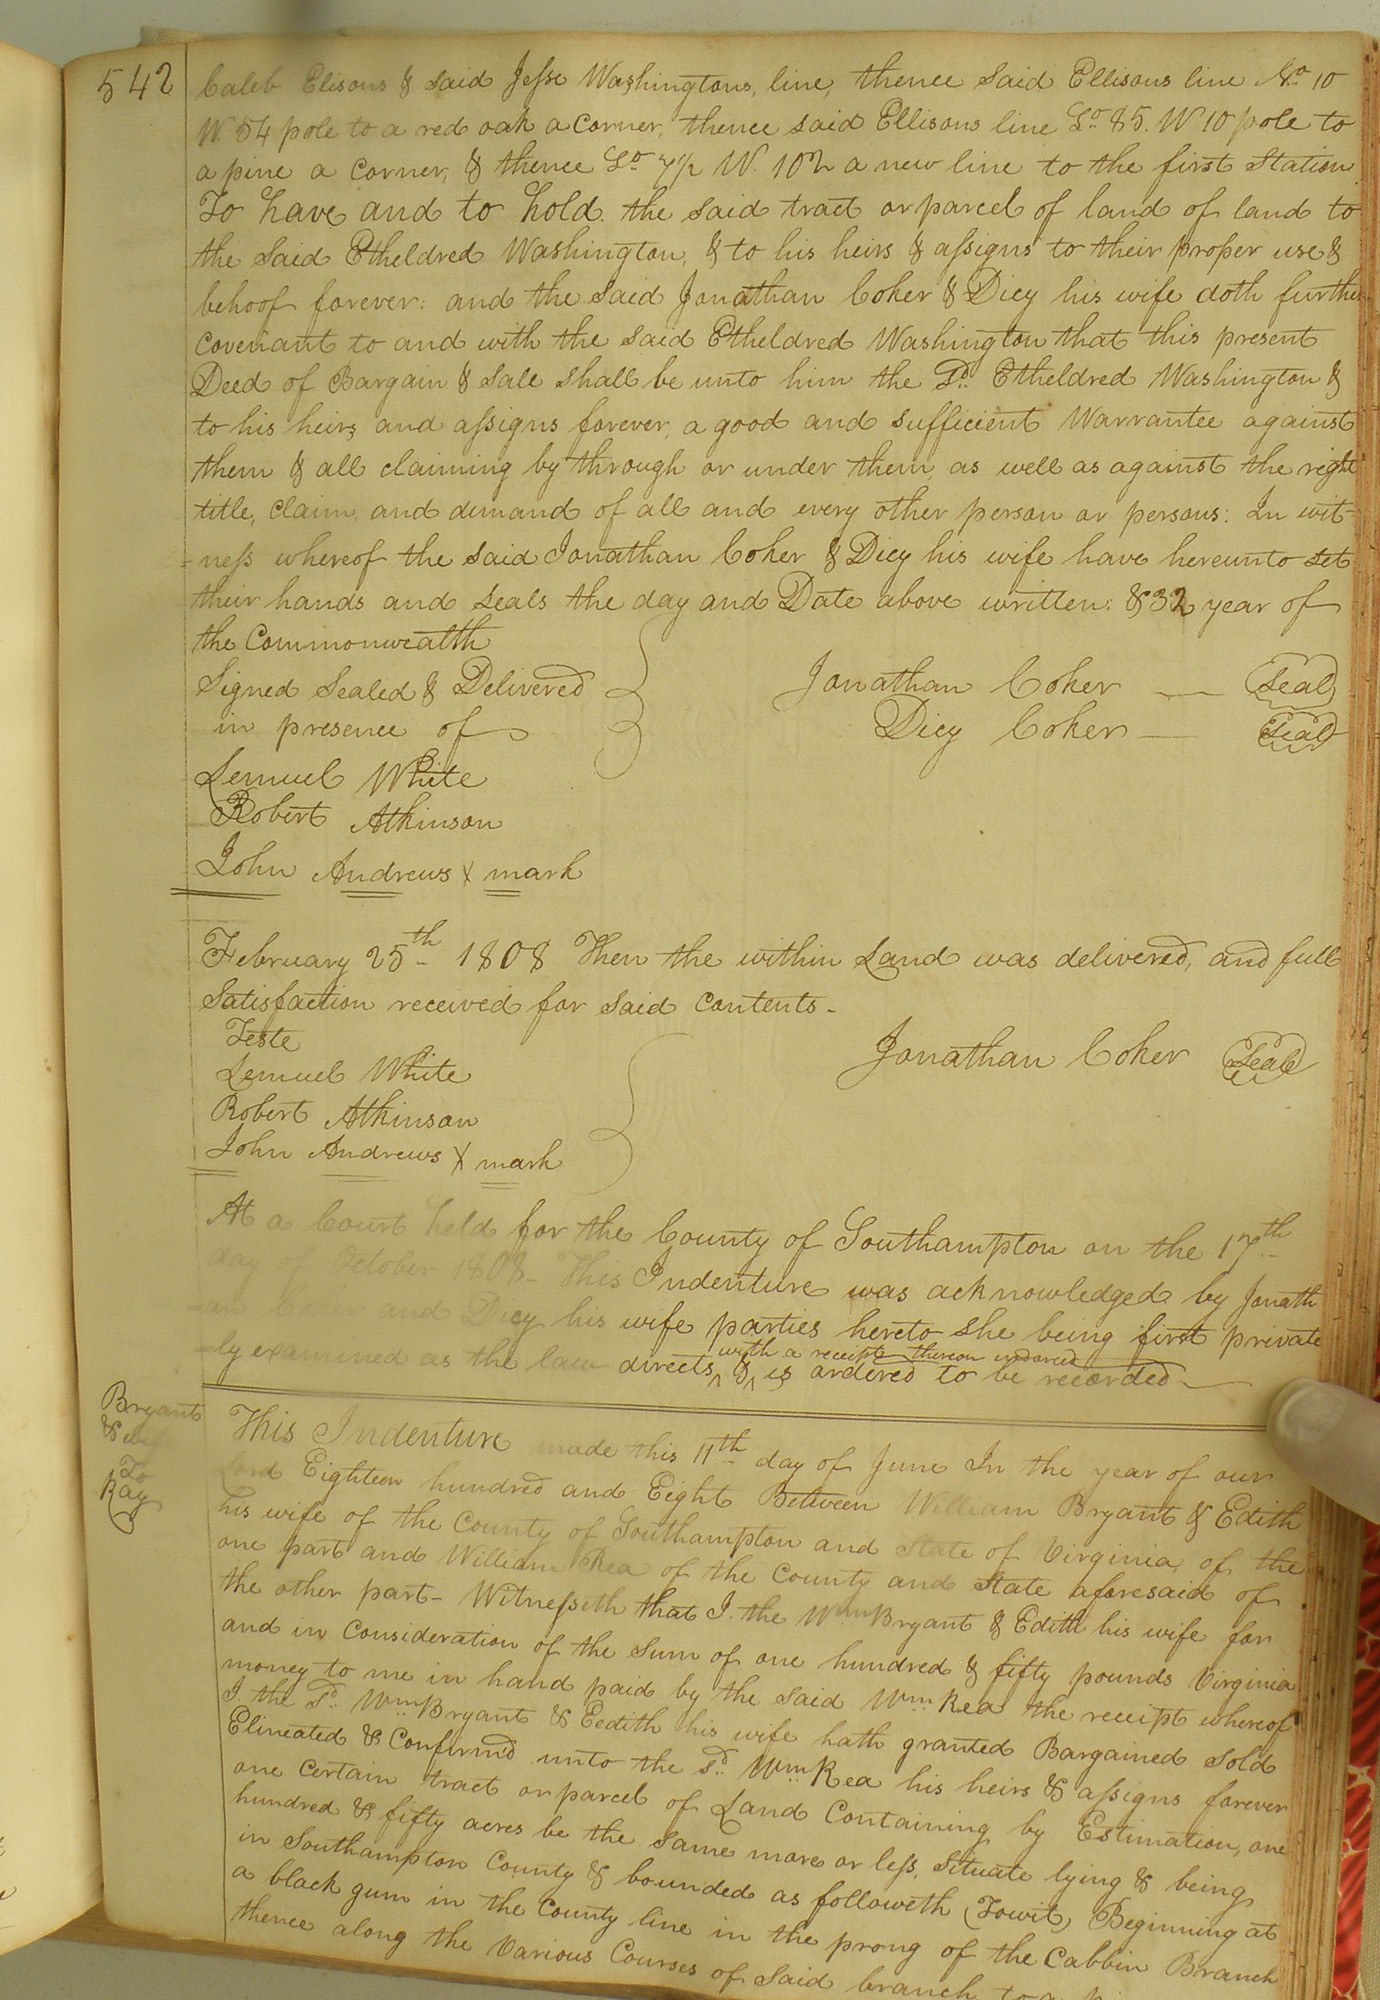 542
Caleb Elisons & said Jesse Washingtons, line, thence said Ellisons line No. 10
W. 54 pole to a red oak a corner, thence said Ellisons line So. 85. W 10 pole to
a pine a corner, & thence So 7½ W. 102 a new line to the first Station
To have and to hold. the said tract or parcel of land of land to
the said Etheldred Washington, & to his heirs & assigns to their proper use &
behoof forever: and the said Jonathan Coker & Dicy his wife doth further
covenant to and with the said Etheldred Washington that this present
Deed of Bargain & Sale shall be unto him the Sd. Etheldred Washington &
to his heirs and assigns forever, a good and sufficient Warrantee against
them & all claiming by through or under them, as well as against the right
title, claim, and demand of all and every other person or persons: In wit-
=ness whereof the said Jonathan Coker & Dicy his wife have hereunto set
their hands and seals the day and Date above written: & 32 year of
the Commonwealth
Signed Sealed & Delivered
in presence of
Jonathan Coker — Seal
Dicy Coker — Seal
Lemuel White
Robert Atkinson
John Andrews X mark
February 25th 1808 Then the within Land was delivered, and full
Satisfaction received for said contents.
Teste
Jonathan Coker Seal
Lemuel White
Robert Atkinson
John Andrews X mark
At a Court held for the County of Southampton on the 17th
day October 1808 This Indenture was acknowledged by Jonath
=an Coker and Dicy his wife parties hereto she being first private
=ly examined as the law directs ^ with a receipt thereon indorced & ^ is ordered to be recorded
Bryant
& wife
To
Ray
This Indenture made this 11th day of June In the year of our
Lord Eighteen hundred and Eight Between William Bryant & Edith
his wife of the County of Southampton and State of Virginia, of the
one part and William Rea of the County and State aforesaid of
the other part- Witnesseth that I. the Wm Bryant & Edith his wife for
and in Consideration of the Sum of one hundred & fifty pounds Virginia
money to me in hand paid by the said Wm Rea the receipt whereof
I the Sd. Wm Bryant & Eedith his wife hath granted Bargained Sold
Elineated & Confirm'd unto the Sd. Wm Rea his heirs & assigns forever
one certain tract or parcel of Land Containing by Estimation, one
hundred & fifty acres be the same more or less, Situate lying & being
in Southampton County & bounded as followeth (Towit) Beginning at
a black gum in the County line in the prong of the Cabbin Branch
thence along the Various Courses of Said branch to a